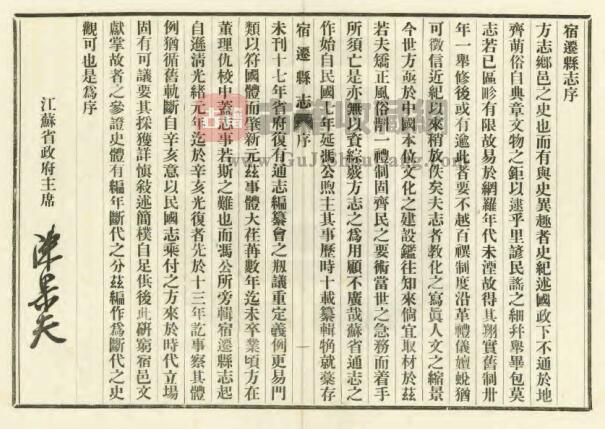 宿遷縣志序
方志鄉邑之史也而有與史異趣者史紀述國政下不通於地
齊萌俗自典章文物之鉅以逮乎里諺民謠之細幷舉畢包莫
志若已區畛有限故易於網羅年代未湮故得其翔實舊制卅
年一舉修後或有逾此者要不越百禩制度沿革禮儀嬗蛻猶
可徵信近紀以來稍放佚矣夫志者敎化之寫眞人文之縮景
今世方亟於中國本位文化之建設鑑往知來倘宜取材於茲
若夫矯正風俗一禮制固齊民之要術當世之急務而着手
所須亡是亦無以資綜覈方志之爲用顧不廣哉蘇省通志之
宿遷縣志 序 一
作始自民國七年延馮公煦主其事歷時十載纂輯觕就藁存
未刊十七年省府復有通志編纂會之剏議重定義例更易門
類以符國體而肇新元茲事體大荏苒數年迄未卒業頃方在
董理仇校中蓋志事若斯之難也而馮公所旁輯宿遷縣志起
自遜淸光緒元年迄於辛亥光復者先於十三年訖事察其體
例猶循舊軌斷自辛亥意以民國志乘付之方來於時代立場
固有可議要其採獲詳愼敍述簡樸自足供後此硏窮宿邑文
獻掌故者之參證史體有編年斷代之分茲編作爲斷代之史
觀可也是爲序
江蘇省政府主席
陳果夫
古籍
www.GuJiShuCang.com